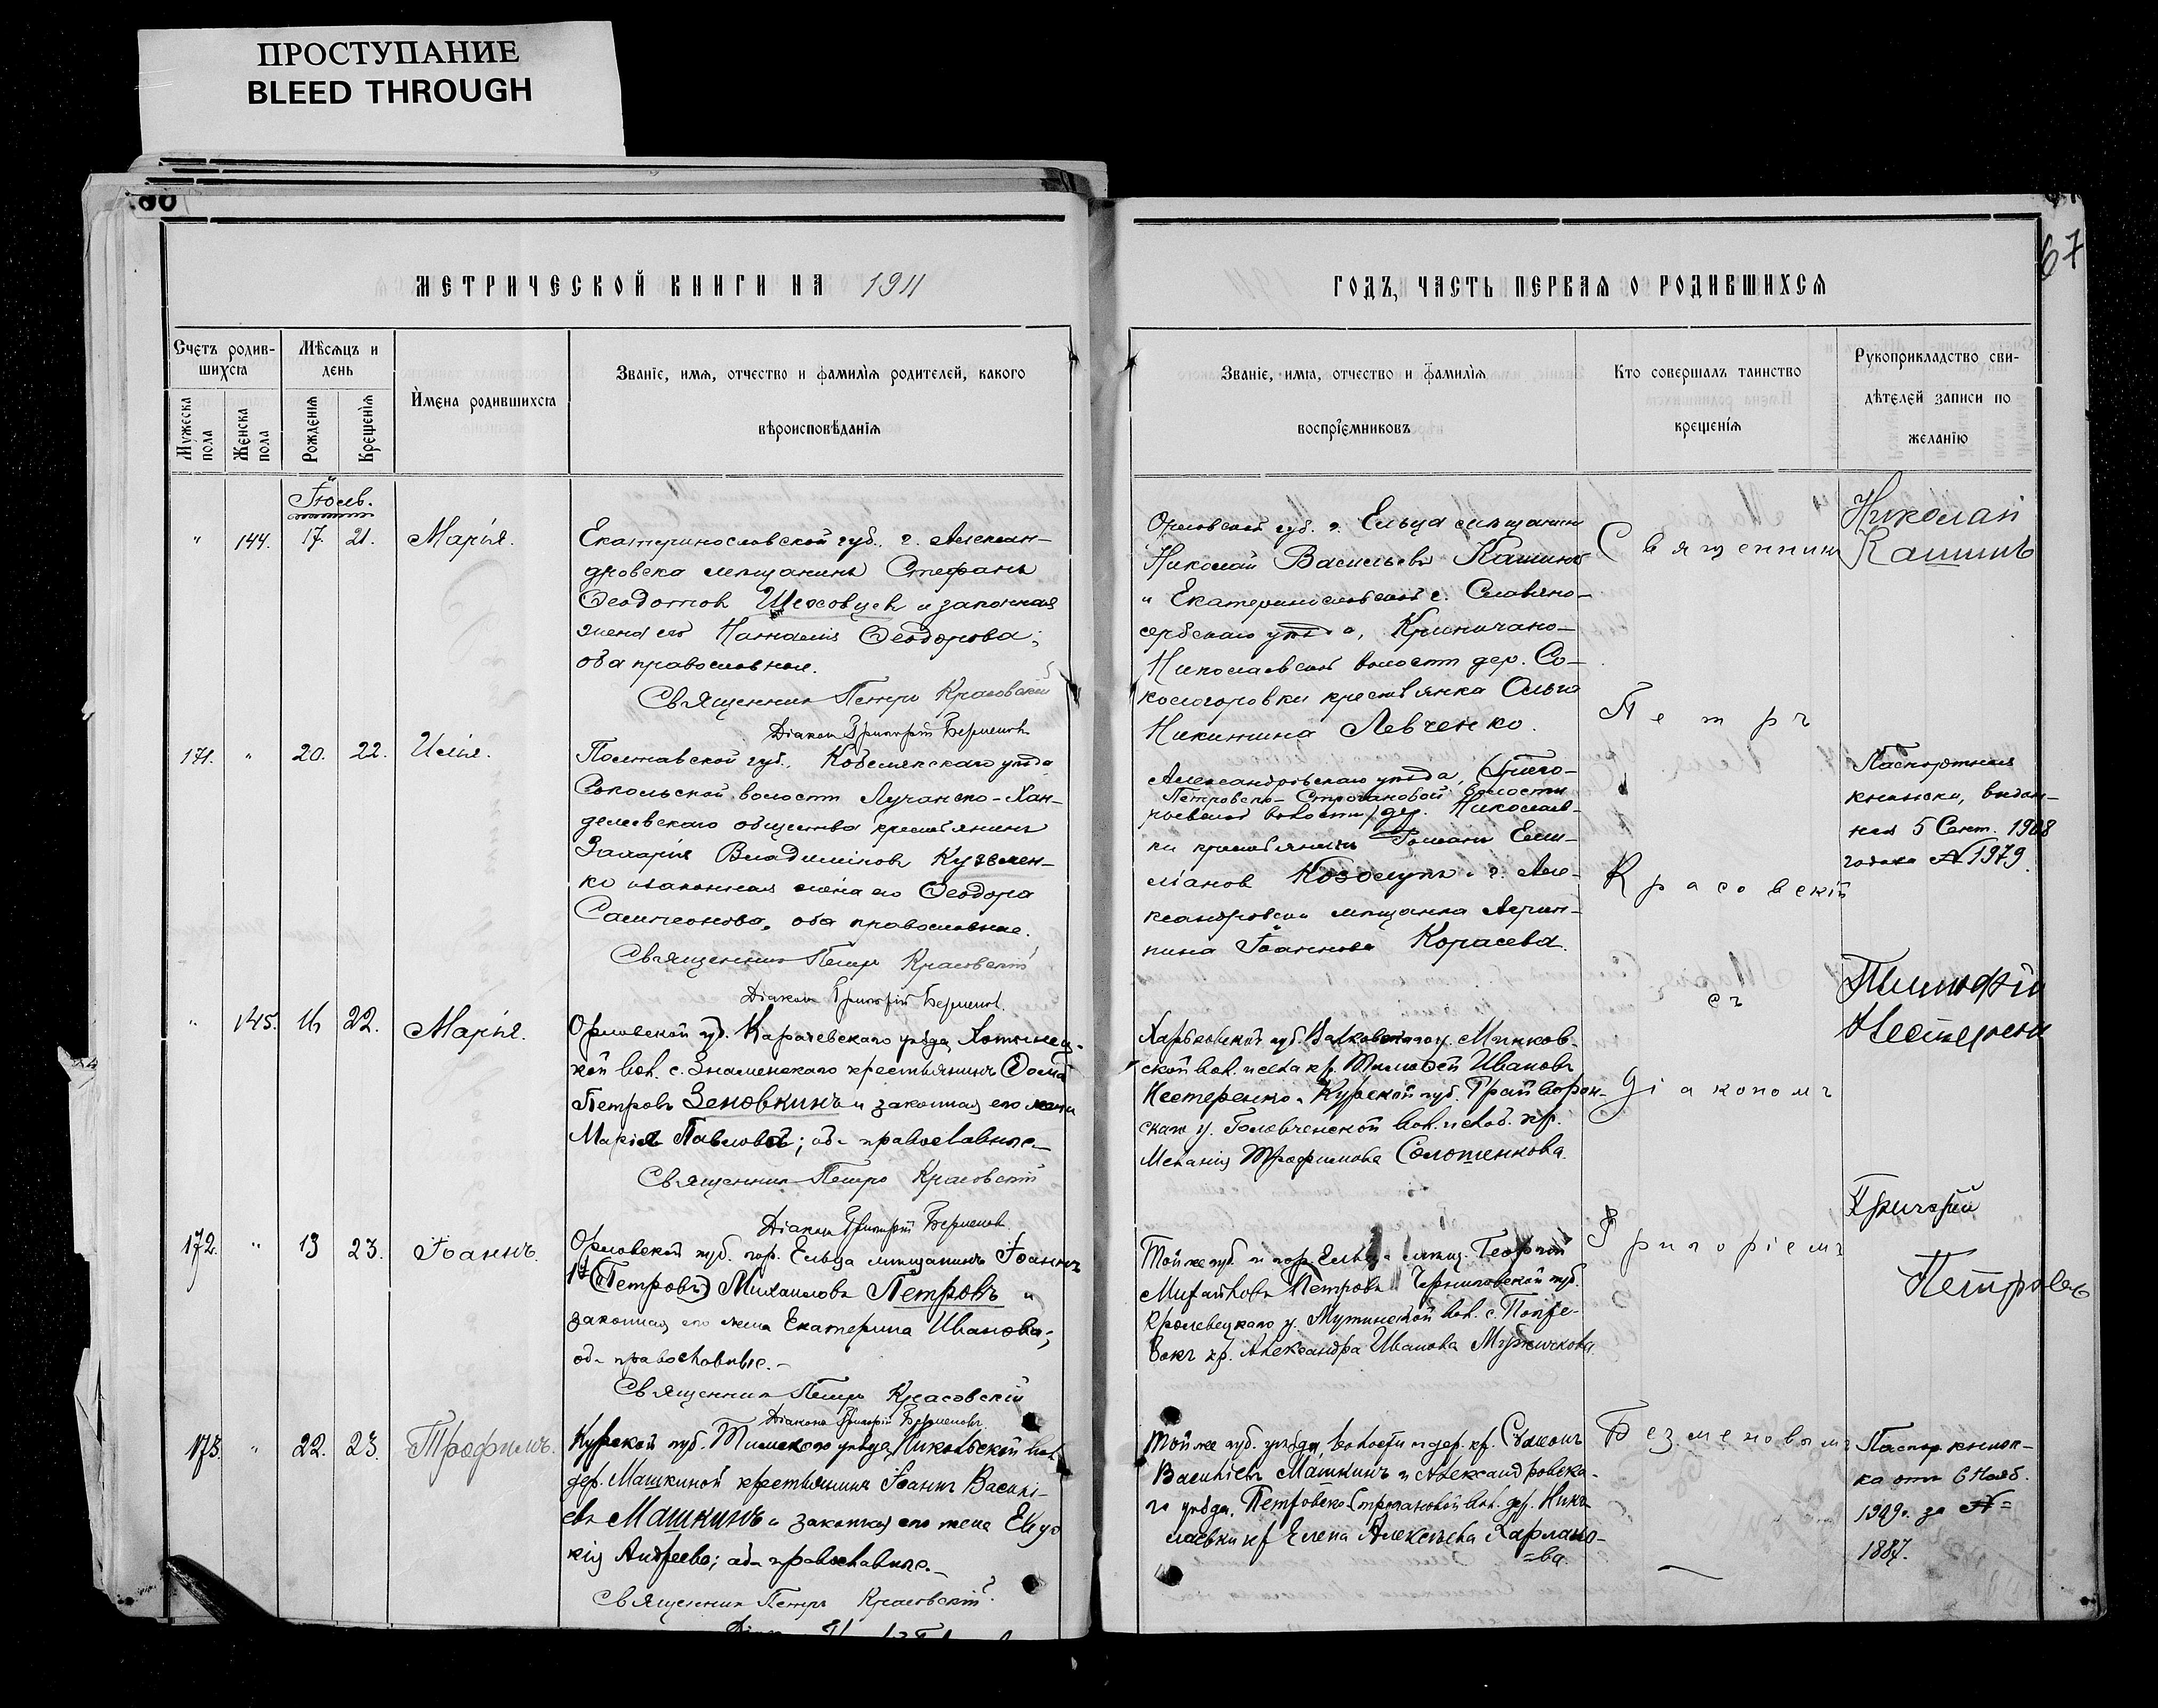 ПРОСТУПАНИЕ
BLEED THROUGH
67
МЕТРИЧЕСКОЙ КНИГИ НА 1911
ГОДЪ, ЧАСТЬ ПЕРВАЯ О РОДИВШИХСЯ
Счетъ родив-
шихся
Мужеска пола
Женска пола
Мѣсяцъ и
день
Рожденія
Крещенія
Имена родившихся
Званіе, имя, отчество и фамилія родителей, какого
вѣроисповѣданія
Званіе, имя, отчество и фамилія
воспріемниковъ
Кто совершалъ таинство
крещенія
Рукоприкладство сви-
дѣтелей записи по
желанію
Іюль.
" 144. 17. 21. Марія.
Екатеринославской губ. г. Алексан-
дровска мѣщанинъ Стефанъ
Ѳеодотовъ Шеховцевъ и законная
жена его Наталія Ѳеодорова;
оба православные.
Священникъ Петръ Красовскій
Діаконъ Григорій
Орловской губ. г. Ельца мѣщанинъ
Николай Васильевъ Кашинъ
и Екатеринославской г. Славяно-
сербскаго уѣзда, Криничано-
Николаевской волости дер. Со-
кологоровки крестьянка Ольга
Никитина Левченко.
Священникъ
Николай
Кашинъ
171. " 20. 22. Илія.
Полтавской губ., Кобелякскаго уѣзда
Сокольской волости Лучанско-Хан-
делеевскаго общества крестьянинъ
Захарія Владиміровъ Кузьмен-
ко и законная жена его Ѳеодора
Сампсонова, оба православные.
Священникъ Петръ Красовскій
Діаконъ Григорій
Александровскаго уѣзда,
Петровско-Строгановой волости
волости, дер. Николаев-
ки крестьянинъ Романъ Еми-
ліановъ Козолупъ и г. Але-
ксандровска мѣщанка Агрип-
пина Іоаннова Корасева.
Петръ
Красовскій
Паспортная
книжка, выдан-
ная 5 Сент. 1908
года за № 1979.
" 145. 16 22. Марія.
Орловской губ. Карачевскаго уѣзда, Хотынец-
кой вол. с. Знаменскаго крестьянинъ Ѳома
Петровъ Зеновкинъ и законная его жена
Марія Павлова; оба православные
Священникъ Петръ Красовскій
Діаконъ Григорій
Харьковской губ. Валковскаго у. Минков-
ской вол. и села кр. Тимоѳей Ивановъ
Нестеренко и Курской губ. Грайворон-
скаго у. вол. и слоб. кр.
Меланія Трофимова Солошенкова.
съ
Діакономъ
Тимофій
Нестеренко
172. " 13 23. Іоаннъ.
Орловской губ. гор. Ельца мѣщанинъ Іоаннъ
1й (Петровъ) Михаиловъ Петровъ и
законная его жена Екатерина Иванова;
оба православные.
Священникъ Петръ Красовскій
Діаконъ Григорій
Той же губ. и гор. Ельца мѣщ. Георгій
Михайловъ Петровъ Черниговской губ.
Кролевецкаго у. Мутинской вол. с.
кр. Александра Иванова Мужичкова.
Григоріемъ
Григорій
Петровъ
173. " 22. 23 Трофимъ.
Курской губ. Тимскаго уѣзда, Никольской вол.
дер. Машкиной крестьянинъ Іоаннъ Василі-
евъ Машкинъ и законная его жена Евдо
кія Андреева; оба православные.
Священникъ Петръ Красовскій
Той же губ. уѣзда, волости и дер. кр. Сѵмеонъ
Василіевъ Машкинъ и Александровска-
го уѣзда, Петровско-Строгановой вол. дер. Нико-
лаевки кр Елена Алексѣева Харлано-
ва.
Безменовымъ
Паспор. книж-
ка отъ 6 Нояб.
1909г. за №
1887.